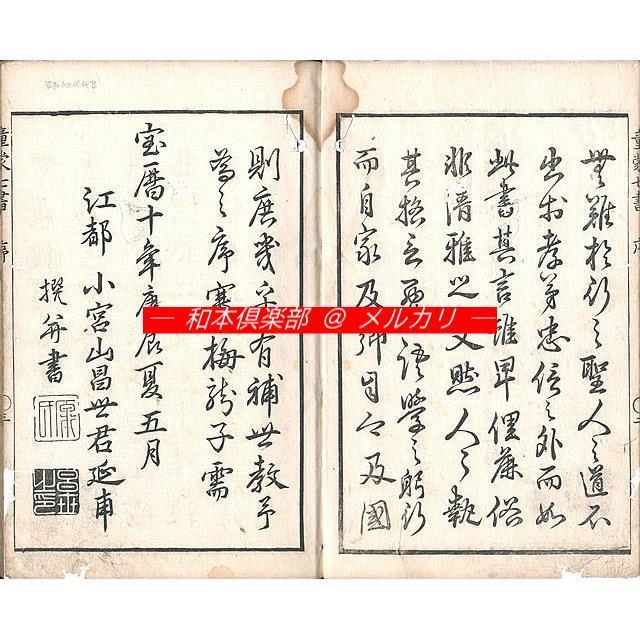 童蒙七書 序
難於行之聖人之道不
出於孝弟忠信之外而如
此書其言雖卑俚俗
非清雅之文然人之執
其語學之躬行
而自家及郷自及國
則庶幾乎有補世教予
為之序寒梅子需
宝暦十年庚辰夏五月
江都 小宮山昌世君延甫
撰并書
童蒙七書 序
— 和本倶楽部 @ メルカリ —